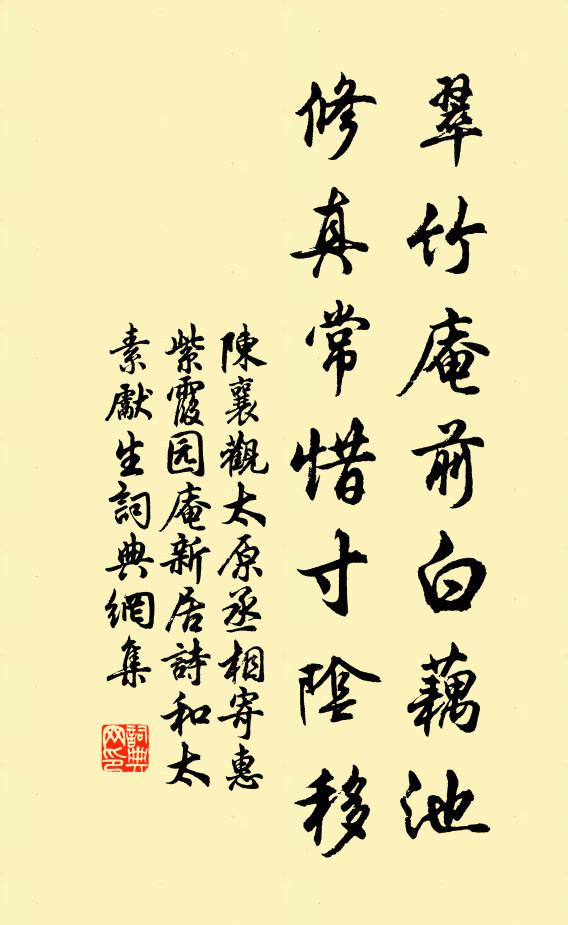 翠竹庵前白藕池
修真常惜寸陰移
陳襄觀太原丞相寄惠
紫霞园庵新居詩和太
素獻生詞典網集
詞典网印